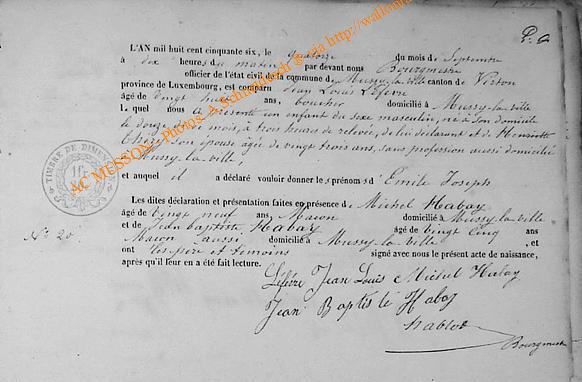 P. G
L'AN mil huit cent cinquante six, le quatorze du mois de Septembre
à dix heures du matin par devant nous Bourgmestre
officier de l'état civil de la commune de Mussy-la-ville canton de Virton
province de Luxembourg, est comparu Jean Louis Lefevre
âgé de vingt huit ans, boucher domicilié à Mussy-la-ville
Lequel nous a présenté un enfant du sexe masculin, né à son domicile
le douze de ce mois, à trois heures de relevée, de lui déclarant et de Henriette
son épouse âgée de vingt trois ans, sans profession aussi domiciliée
à Mussy-la-ville.
et auquel il a déclaré vouloir donner les prénoms d' Emile Joseph
Les dites déclaration et présentation faites en présence de Michel Habay
âgé de vingt neuf ans Maçon domicilié à Mussy-la-ville
et de Jean baptiste Habay âgé de vingt cinq ans
Maçon aussi domicilié à Mussy-la-ville, et
ont les père et témoins signé avec nous le présent acte de naissance,
après qu'il leur en a été fait lecture.
N° 20.
Lefèvre Jean Louis Michel Habay
Jean Baptiste Habay
Bourgmestre
TIMBRE DE DIMENSION
AC MUSSON Photos